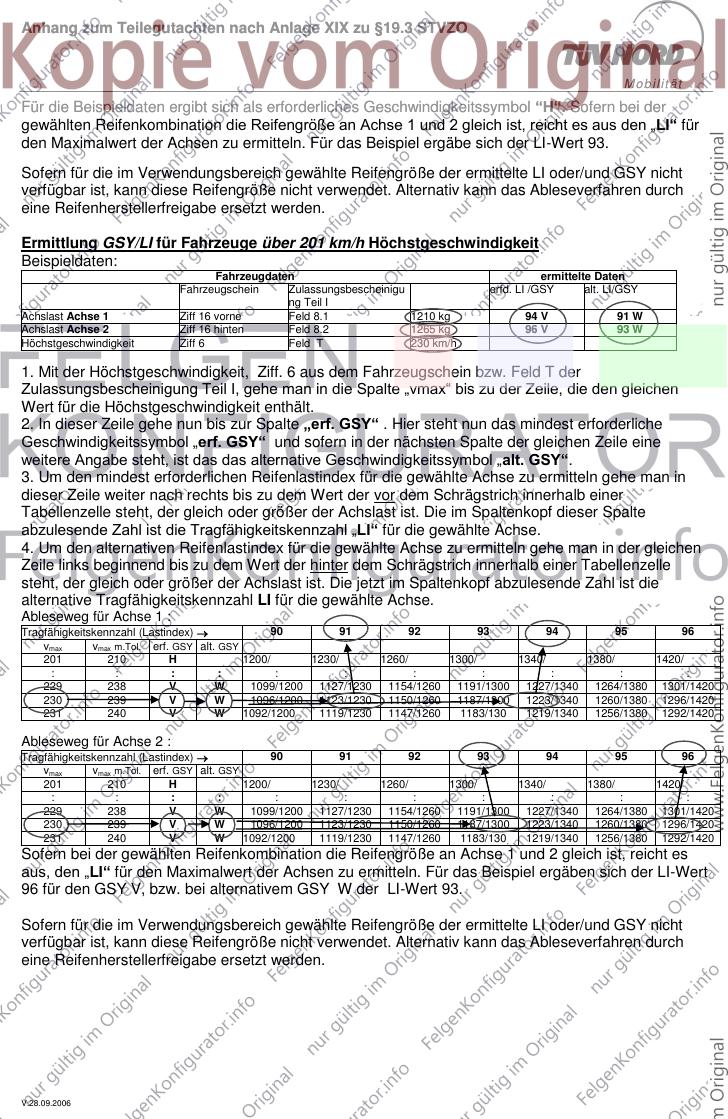 Anhang zum Teilegutachten nach Anlage XIX zu §19.3 STVZO
Kopie vom Original
TÜV NORD
Mobilität
Für die Beispieldaten ergibt sich als erforderliches Geschwindigkeitssymbol "H". Sofern bei der
gewählten Reifenkombination die Reifengröße an Achse 1 und 2 gleich ist, reicht es aus den „LI“ für
den Maximalwert der Achsen zu ermitteln. Für das Beispiel ergäbe sich der LI-Wert 93.
Sofern für die im Verwendungsbereich gewählte Reifengröße der ermittelte LI oder/und GSY nicht
verfügbar ist, kann diese Reifengröße nicht verwendet. Alternativ kann das Ableseverfahren durch
eine Reifenherstellerfreigabe ersetzt werden.
Ermittlung GSY/LI für Fahrzeuge über 201 km/h Höchstgeschwindigkeit
Beispieldaten:
Fahrzeugdaten ermittelte Daten
Fahrzeugschein Zulassungsbescheinigu erfd. LI /GSY alt. LI/GSY
ng Teil I
Achslast Achse 1 Ziff 16 vorne Feld 8.1 1210 kg 94 V 91 W
Achslast Achse 2 Ziff 16 hinten Feld 8.2 1265 kg 96 V 93 W
Höchstgeschwindigkeit Ziff 6 Feld T 230 km/h
1. Mit der Höchstgeschwindigkeit, Ziff. 6 aus dem Fahrzeugschein bzw. Feld T der
Zulassungsbescheinigung Teil I, gehe man in die Spalte „vmax“ bis zu der Zeile, die den gleichen
Wert für die Höchstgeschwindigkeit enthält.
2. In dieser Zeile gehe nun bis zur Spalte „erf. GSY“ . Hier steht nun das mindest erforderliche
Geschwindigkeitssymbol „erf. GSY“ und sofern in der nächsten Spalte der gleichen Zeile eine
weitere Angabe steht, ist das das alternative Geschwindigkeitssymbol „alt. GSY“.
3. Um den mindest erforderlichen Reifenlastindex für die gewählte Achse zu ermitteln gehe man in
dieser Zeile weiter nach rechts bis zu dem Wert der vor dem Schrägstrich innerhalb einer
Tabellenzelle steht, der gleich oder größer der Achslast ist. Die im Spaltenkopf dieser Spalte
abzulesende Zahl ist die Tragfähigkeitskennzahl „LI“ für die gewählte Achse.
4. Um den alternativen Reifenlastindex für die gewählte Achse zu ermitteln gehe man in der gleichen
Zeile links beginnend bis zu dem Wert der hinter dem Schrägstrich innerhalb einer Tabellenzelle
steht, der gleich oder größer der Achslast ist. Die jetzt im Spaltenkopf abzulesende Zahl ist die
alternative Tragfähigkeitskennzahl LI für die gewählte Achse.
Ableseweg für Achse 1
Tragfähigkeitskennzahl (Lastindex) → 90 91 92 93 94 95 96
vmax vmax m.Tol. erf. GSY alt. GSY
201 210 H 1200/ 1230/ 1260/ 1300/ 1340/ 1380/ 1420/
: : : : : : : : : : :
229 238 V W 1099/1200 1127/1230 1154/1260 1191/1300 1227/1340 1264/1380 1301/1420
230 239 V W 1096/1200 1123/1230 1150/1260 1187/1300 1223/1340 1260/1380 1296/1420
231 240 V W 1092/1200 1119/1230 1147/1260 1183/130 1219/1340 1256/1380 1292/1420
Ableseweg für Achse 2 :
Tragfähigkeitskennzahl (Lastindex) → 90 91 92 93 94 95 96
vmax vmax m.Tol. erf. GSY alt. GSY
201 210 H 1200/ 1230/ 1260/ 1300/ 1340/ 1380/ 1420/
: : : : : : : : : : :
229 238 V W 1099/1200 1127/1230 1154/1260 1191/1300 1227/1340 1264/1380 1301/1420
230 239 V W 1096/1200 1123/1230 1150/1260 1187/1300 1223/1340 1260/1380 1296/1420
231 240 V W 1092/1200 1119/1230 1147/1260 1183/130 1219/1340 1256/1380 1292/1420
Sofern bei der gewählten Reifenkombination die Reifengröße an Achse 1 und 2 gleich ist, reicht es
aus, den „LI“ für den Maximalwert der Achsen zu ermitteln. Für das Beispiel ergäben sich der LI-Wert
96 für den GSY V, bzw. bei alternativem GSY W der LI-Wert 93.
Sofern für die im Verwendungsbereich gewählte Reifengröße der ermittelte LI oder/und GSY nicht
verfügbar ist, kann diese Reifengröße nicht verwendet. Alternativ kann das Ableseverfahren durch
eine Reifenherstellerfreigabe ersetzt werden.
V:28.09.2006
FELGEN
KONFIGURATOR
FelgenKonfigurator.info
nur gültig im Original
www.FelgenKonfigurator.info